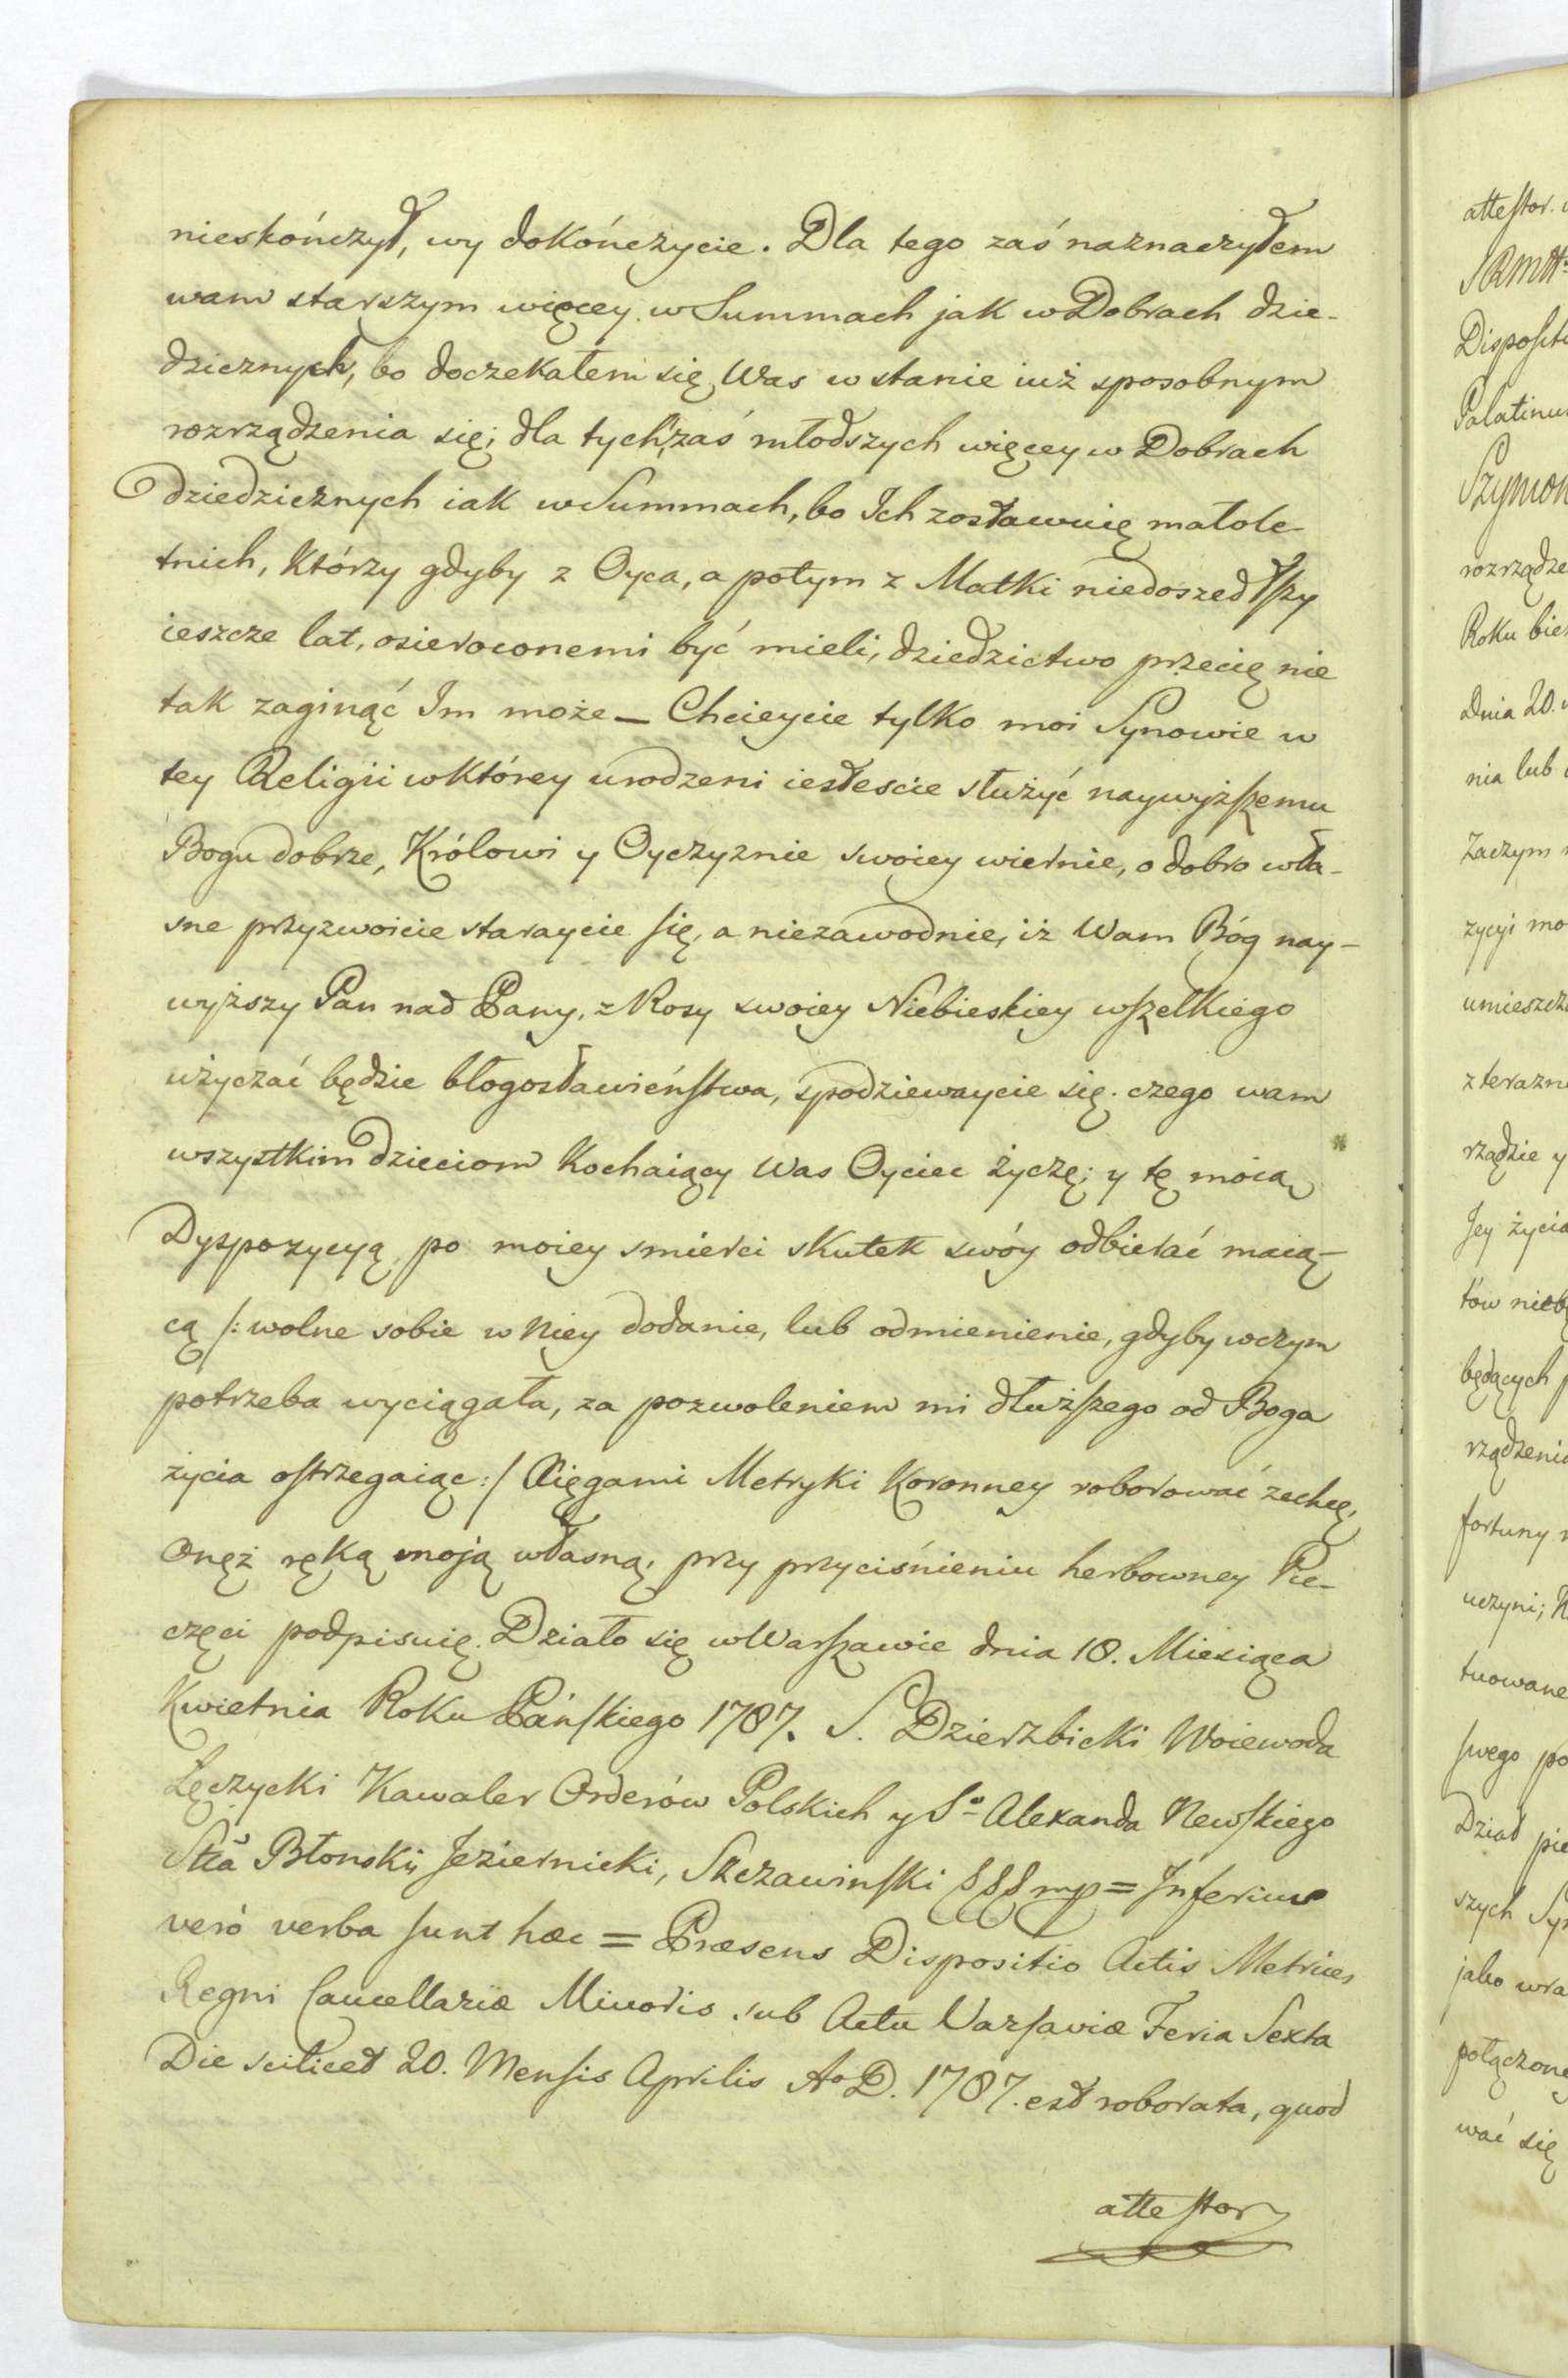 nieskończył, wy dokończycie. Dla tego zaś naznaczyłem
wam starszym więcey w Summach jak w Dobrach dzie-
dzicznych, bo doczekałem się Was w stanie iuż sposobnym
rozrządzenia się; dla tych zaś młodszych więcey w Dobrach
dziedzicznych iak w Summach, bo Ich zostawuię małole-
tnich, którzy gdyby z Oyca, a potym z Matki niedoszedłszy
ieszcze lat, osieroconemi być mieli, dziedzictwo przecię nie
tak zaginąć Im może – Chcieycie tylko moi Synowie w
tey Religii w którey urodzeni iesteście służyć naywyższemu
Bogu dobrze, Królowi y Oyczyznie swoiey wiernie, o dobro wła-
sne przyzwoicie staraycie się, a niezawodnie, iż Wam Bóg nay-
wyższy Pan nad Pany, z Rosy swoiey Niebieskiey wszelkiego
użyczać będzie błogosławieństwa, spodziewaycie się. czego wam
wszystkim dzieciom Kochaiący Was Oyciec życzę; y tę moią
Dyspozycyą po moiey smierci skutek swóy odbierać maią-
cą /: wolne sobie w niey dodanie, lub odmienienie, gdyby w czym
potrzeba wyciągała, za pozwoleniem mi dłuższego od Boga
życia ostrzegaiąc :/ Xięgami Metryki Koronney roborować zechcę,
Onęż ręką moją własną, przy przyciśnieniu herbowney Pie-
częci podpisuię. Działo się w Warszawie dnia 18. Miesiąca
Kwietnia Roku Pańskiego 1787. S. Dzierzbicki Woiewoda
Łęczycki Kawaler Orderów Polskich y So Alexanda Newskiego
Stta Błonski Jeziernicki, Szczawinski SSS mp = Inferius
verò verba sunt hæc = Præsens Dispositio Actis Metrices
Regni Cancellariæ Minoris sub Actu Varsaviæ Feria Sexta
Die scilicet 20. Mensis Aprilis Ao D. 1787. est roborata, quod
attestor